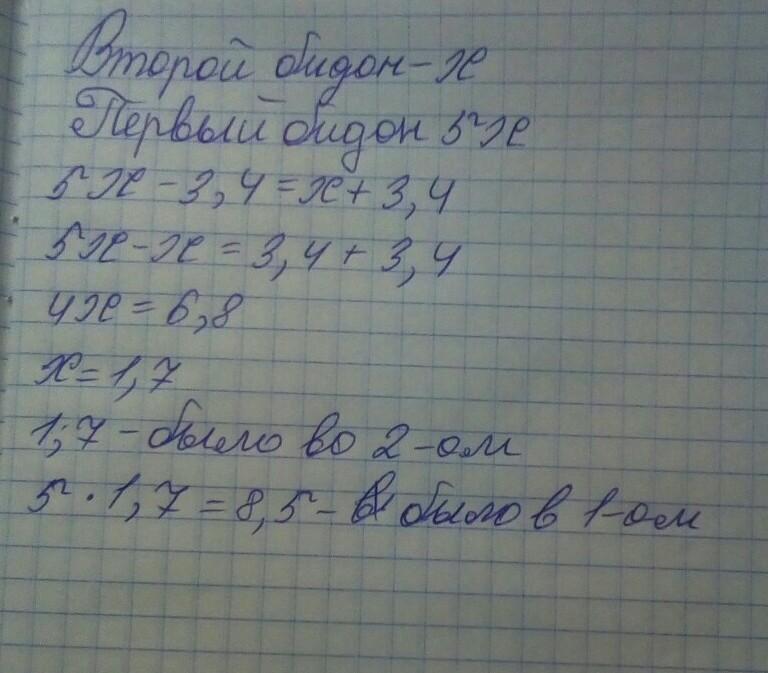 Второй бидон - х
Первый бидон 5х
5х - 3,4 = х + 3,4
5х - х = 3,4 + 3,4
4х = 6,8
х = 1,7
1,7 - было во 2-ом
5 · 1,7 = 8,5 - было в 1-ом